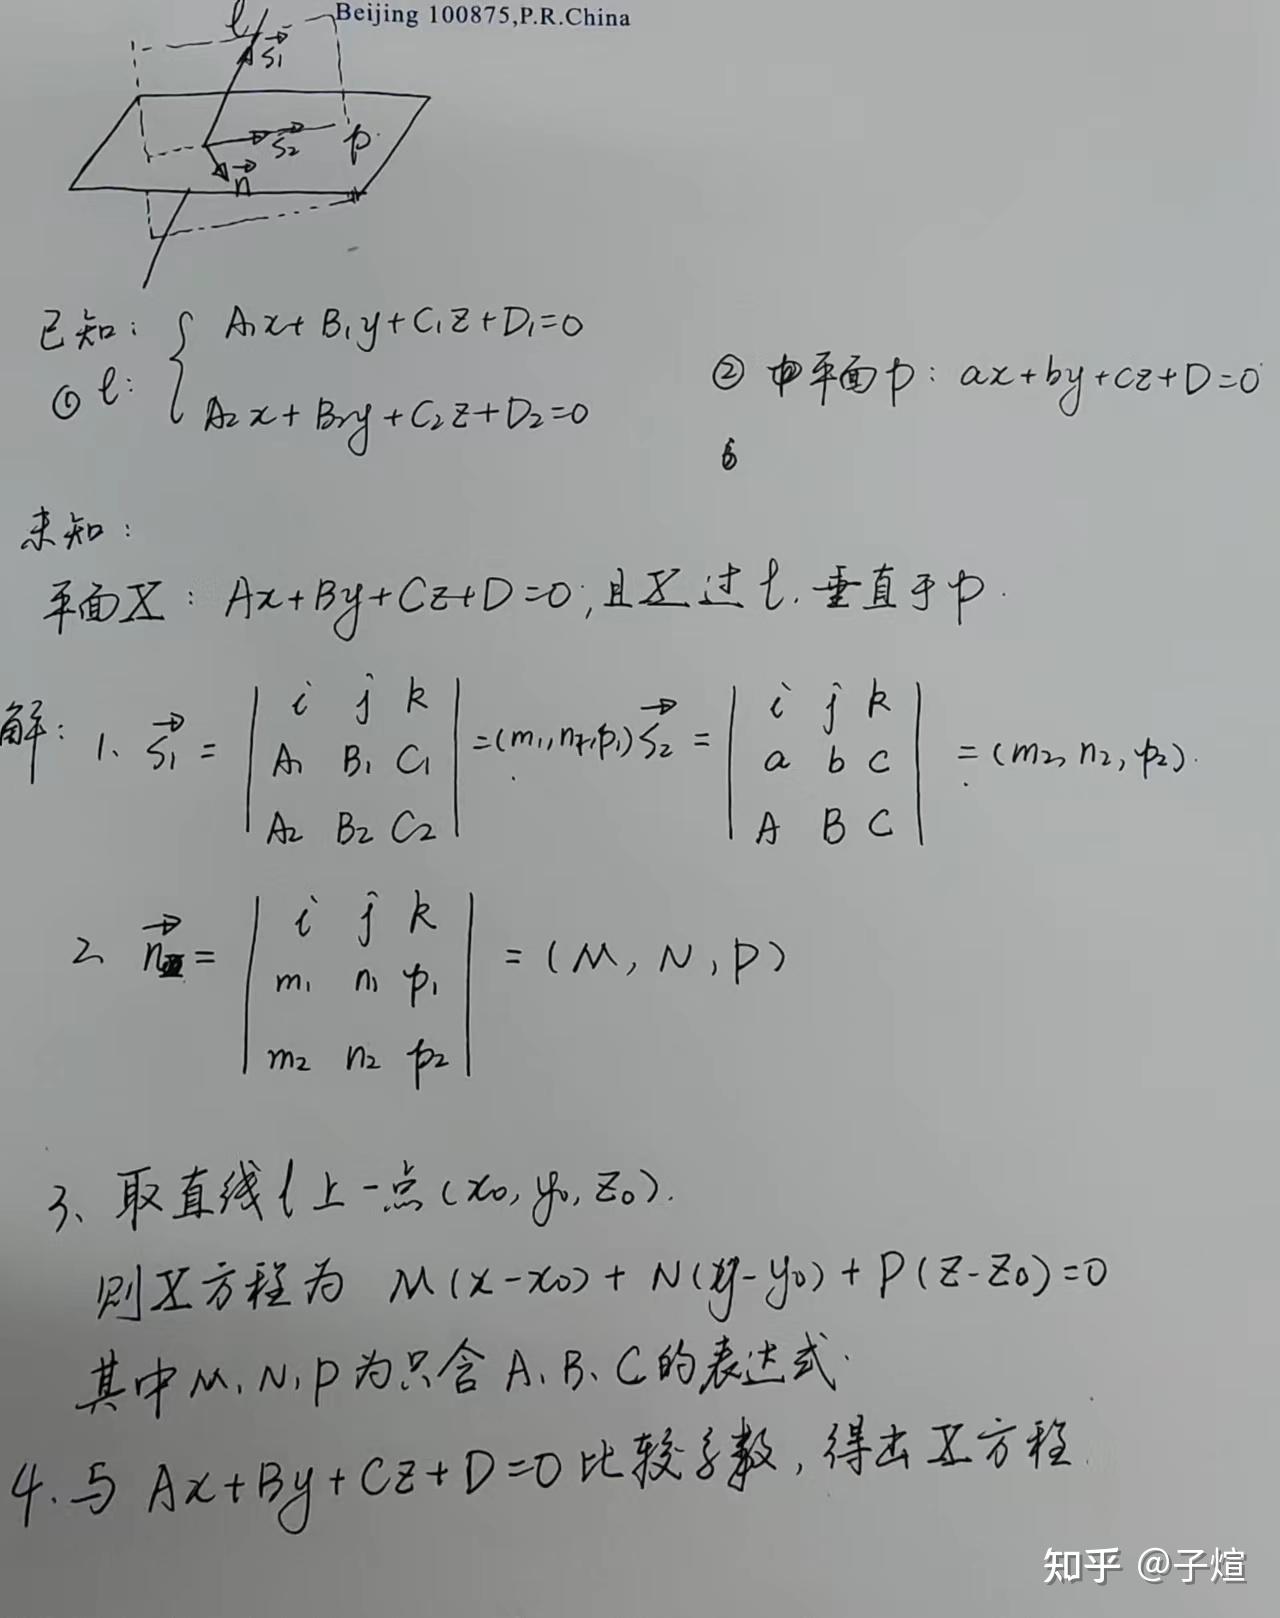 Beijing 100875,P.R.China
l
S₁
S₂
p
n
已知:
① l: { A₁x+B₁y+C₁z+D₁=0
A₂x+B₂y+C₂z+D₂=0
② 平面p: ax+by+cz+D=0
未知:
平面X: Ax+By+Cz+D=0; 且X过l, 垂直于p.
解: 1、S₁ = | i j k | = (m₁, n₁, p₁) S₂ = | i j k | = (m₂, n₂, p₂).
A₁ B₁ C₁ a b c
A₂ B₂ C₂ A B C
2、n = | i j k | = (M, N, P)
m₁ n₁ p₁
m₂ n₂ p₂
3、取直线l上一点(x₀, y₀, z₀).
则X方程为 M(x-x₀)+N(y-y₀)+P(z-z₀)=0
其中M、N、P为只含A、B、C的表达式.
4.与Ax+By+Cz+D=0比较系数, 得出X方程.
知乎 @子煊